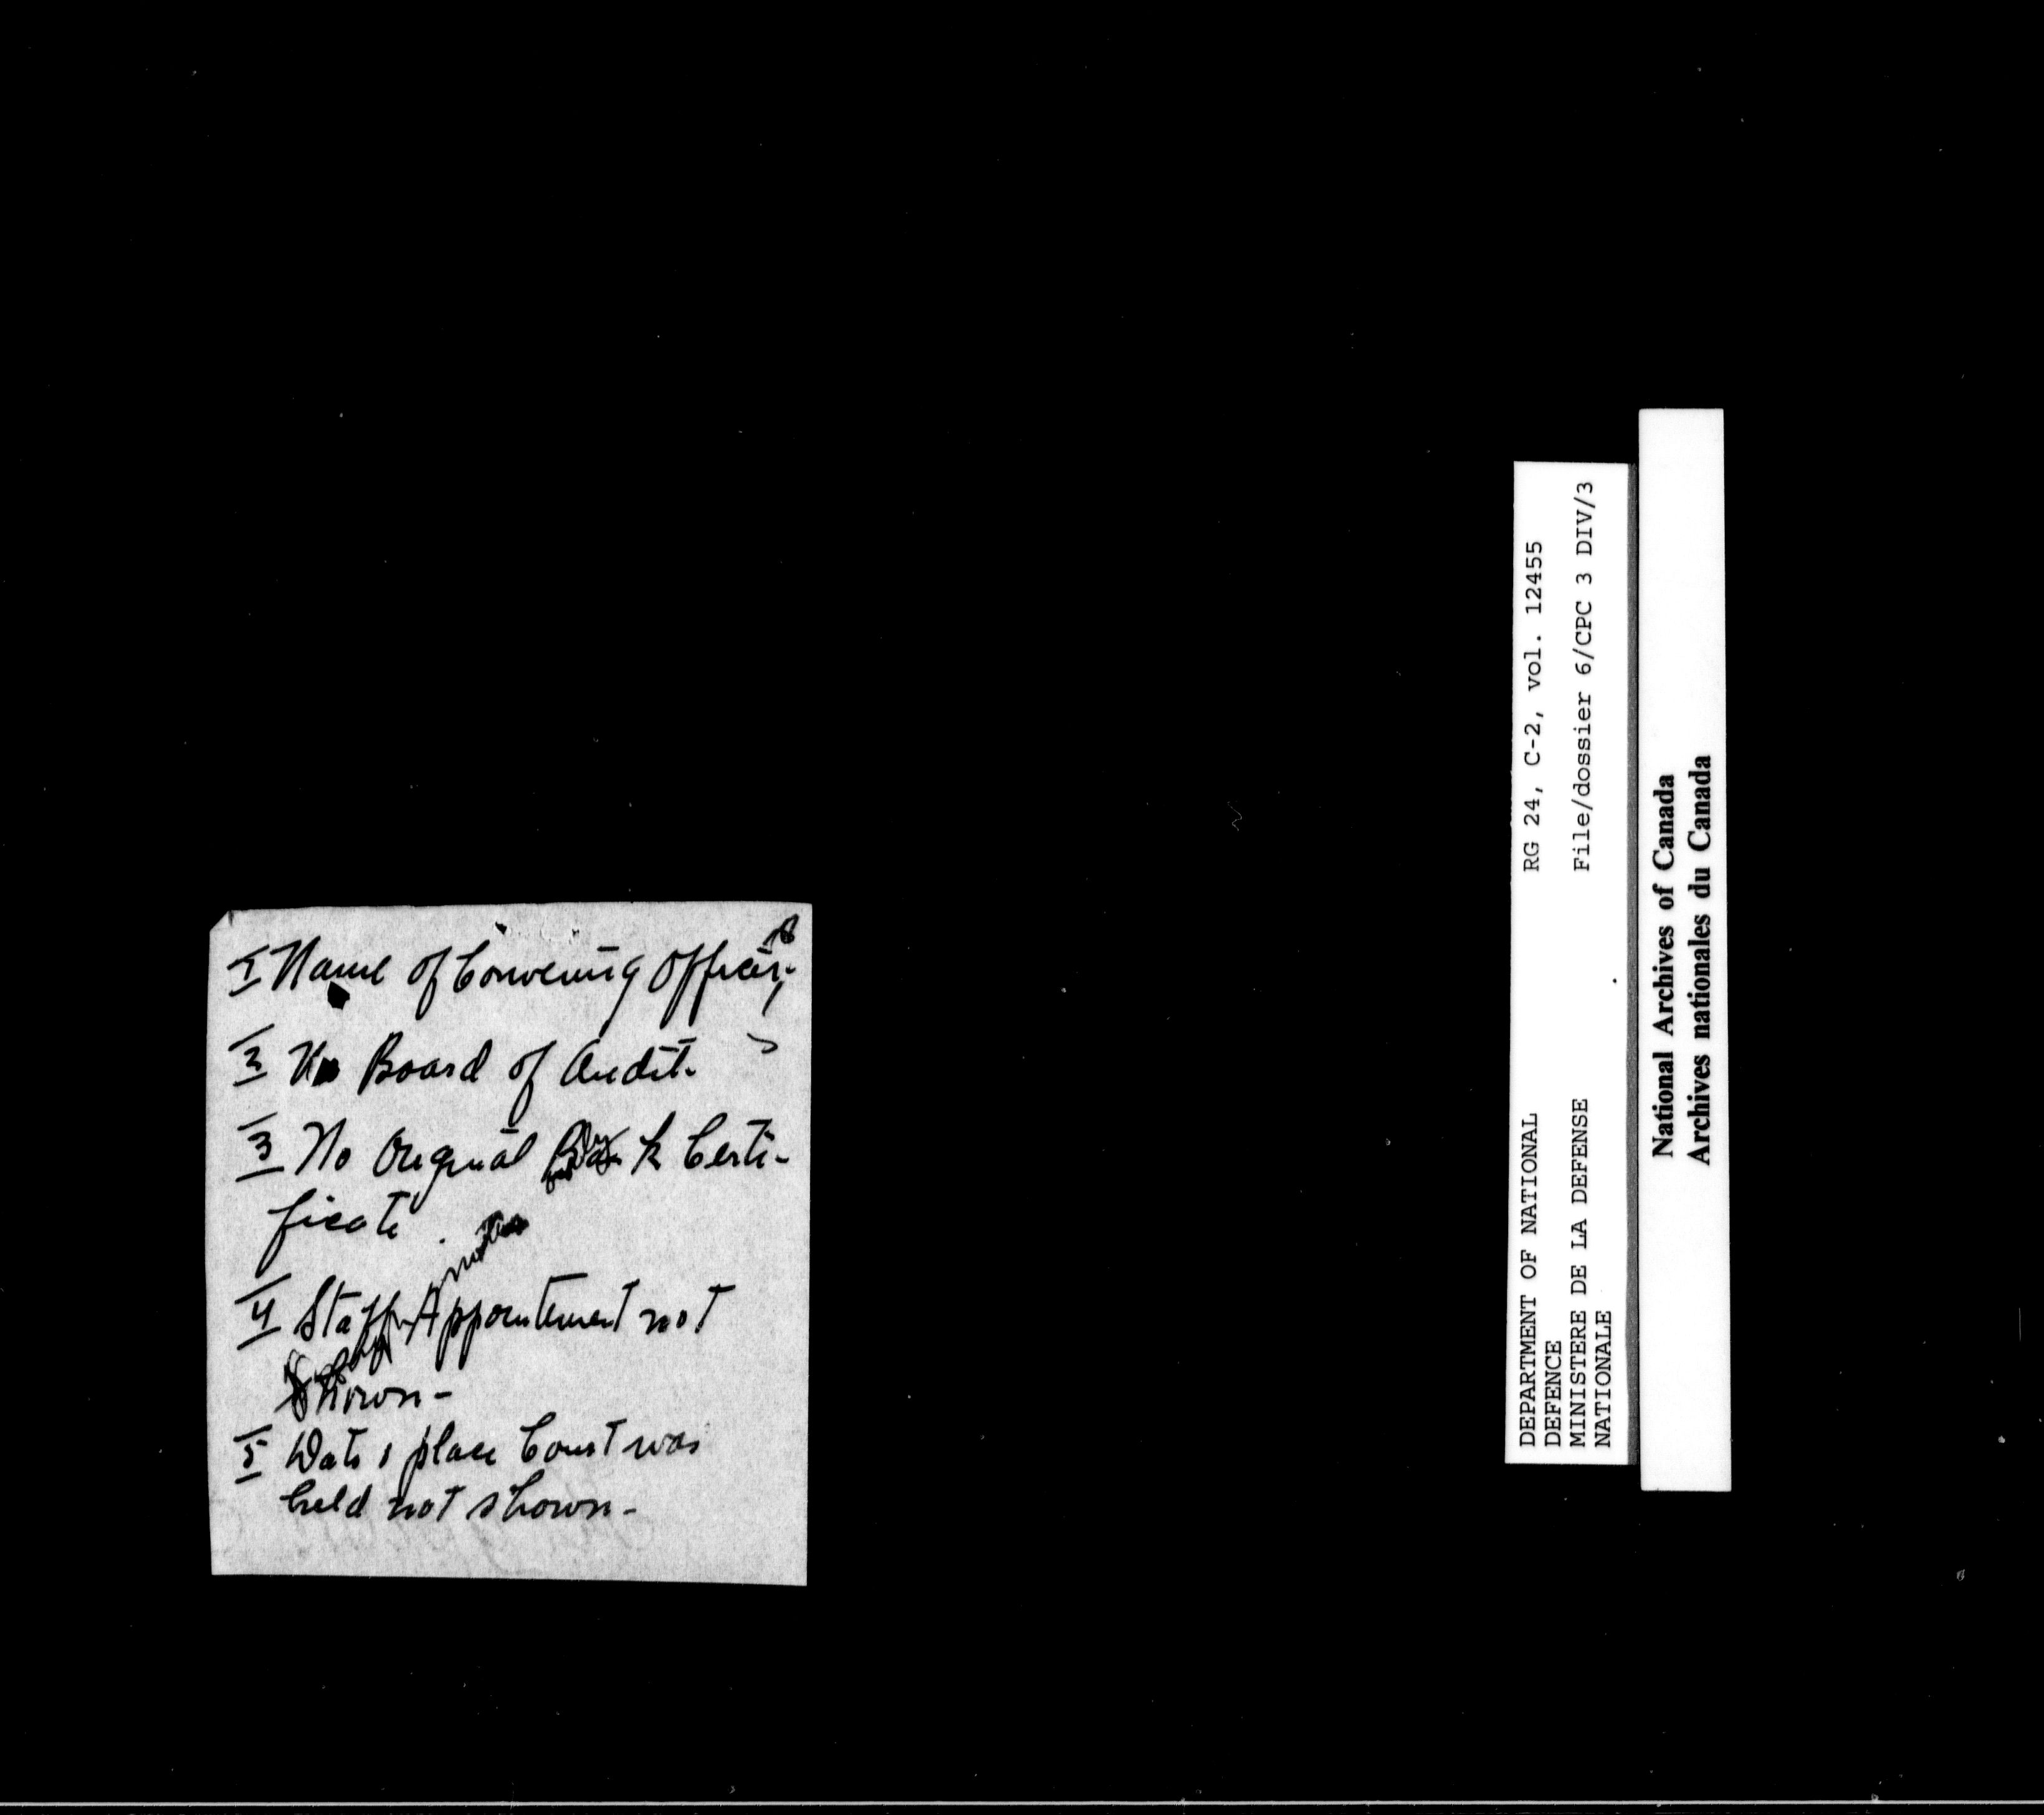 1 Name of Convening Officer,
2 No Board of Audit.
3 No Original Bank Certi-
ficate
4 Staff Appointment not
shown-
5 Date & place Court was
held not shown-
DEPARTMENT OF NATIONAL
DEFENCE
MINISTERE DE LA DEFENSE
NATIONALE
RG 24, C-2, vol. 12455
File/dossier 6/CPC 3 DIV/3
National Archives of Canada
Archives nationales du Canada